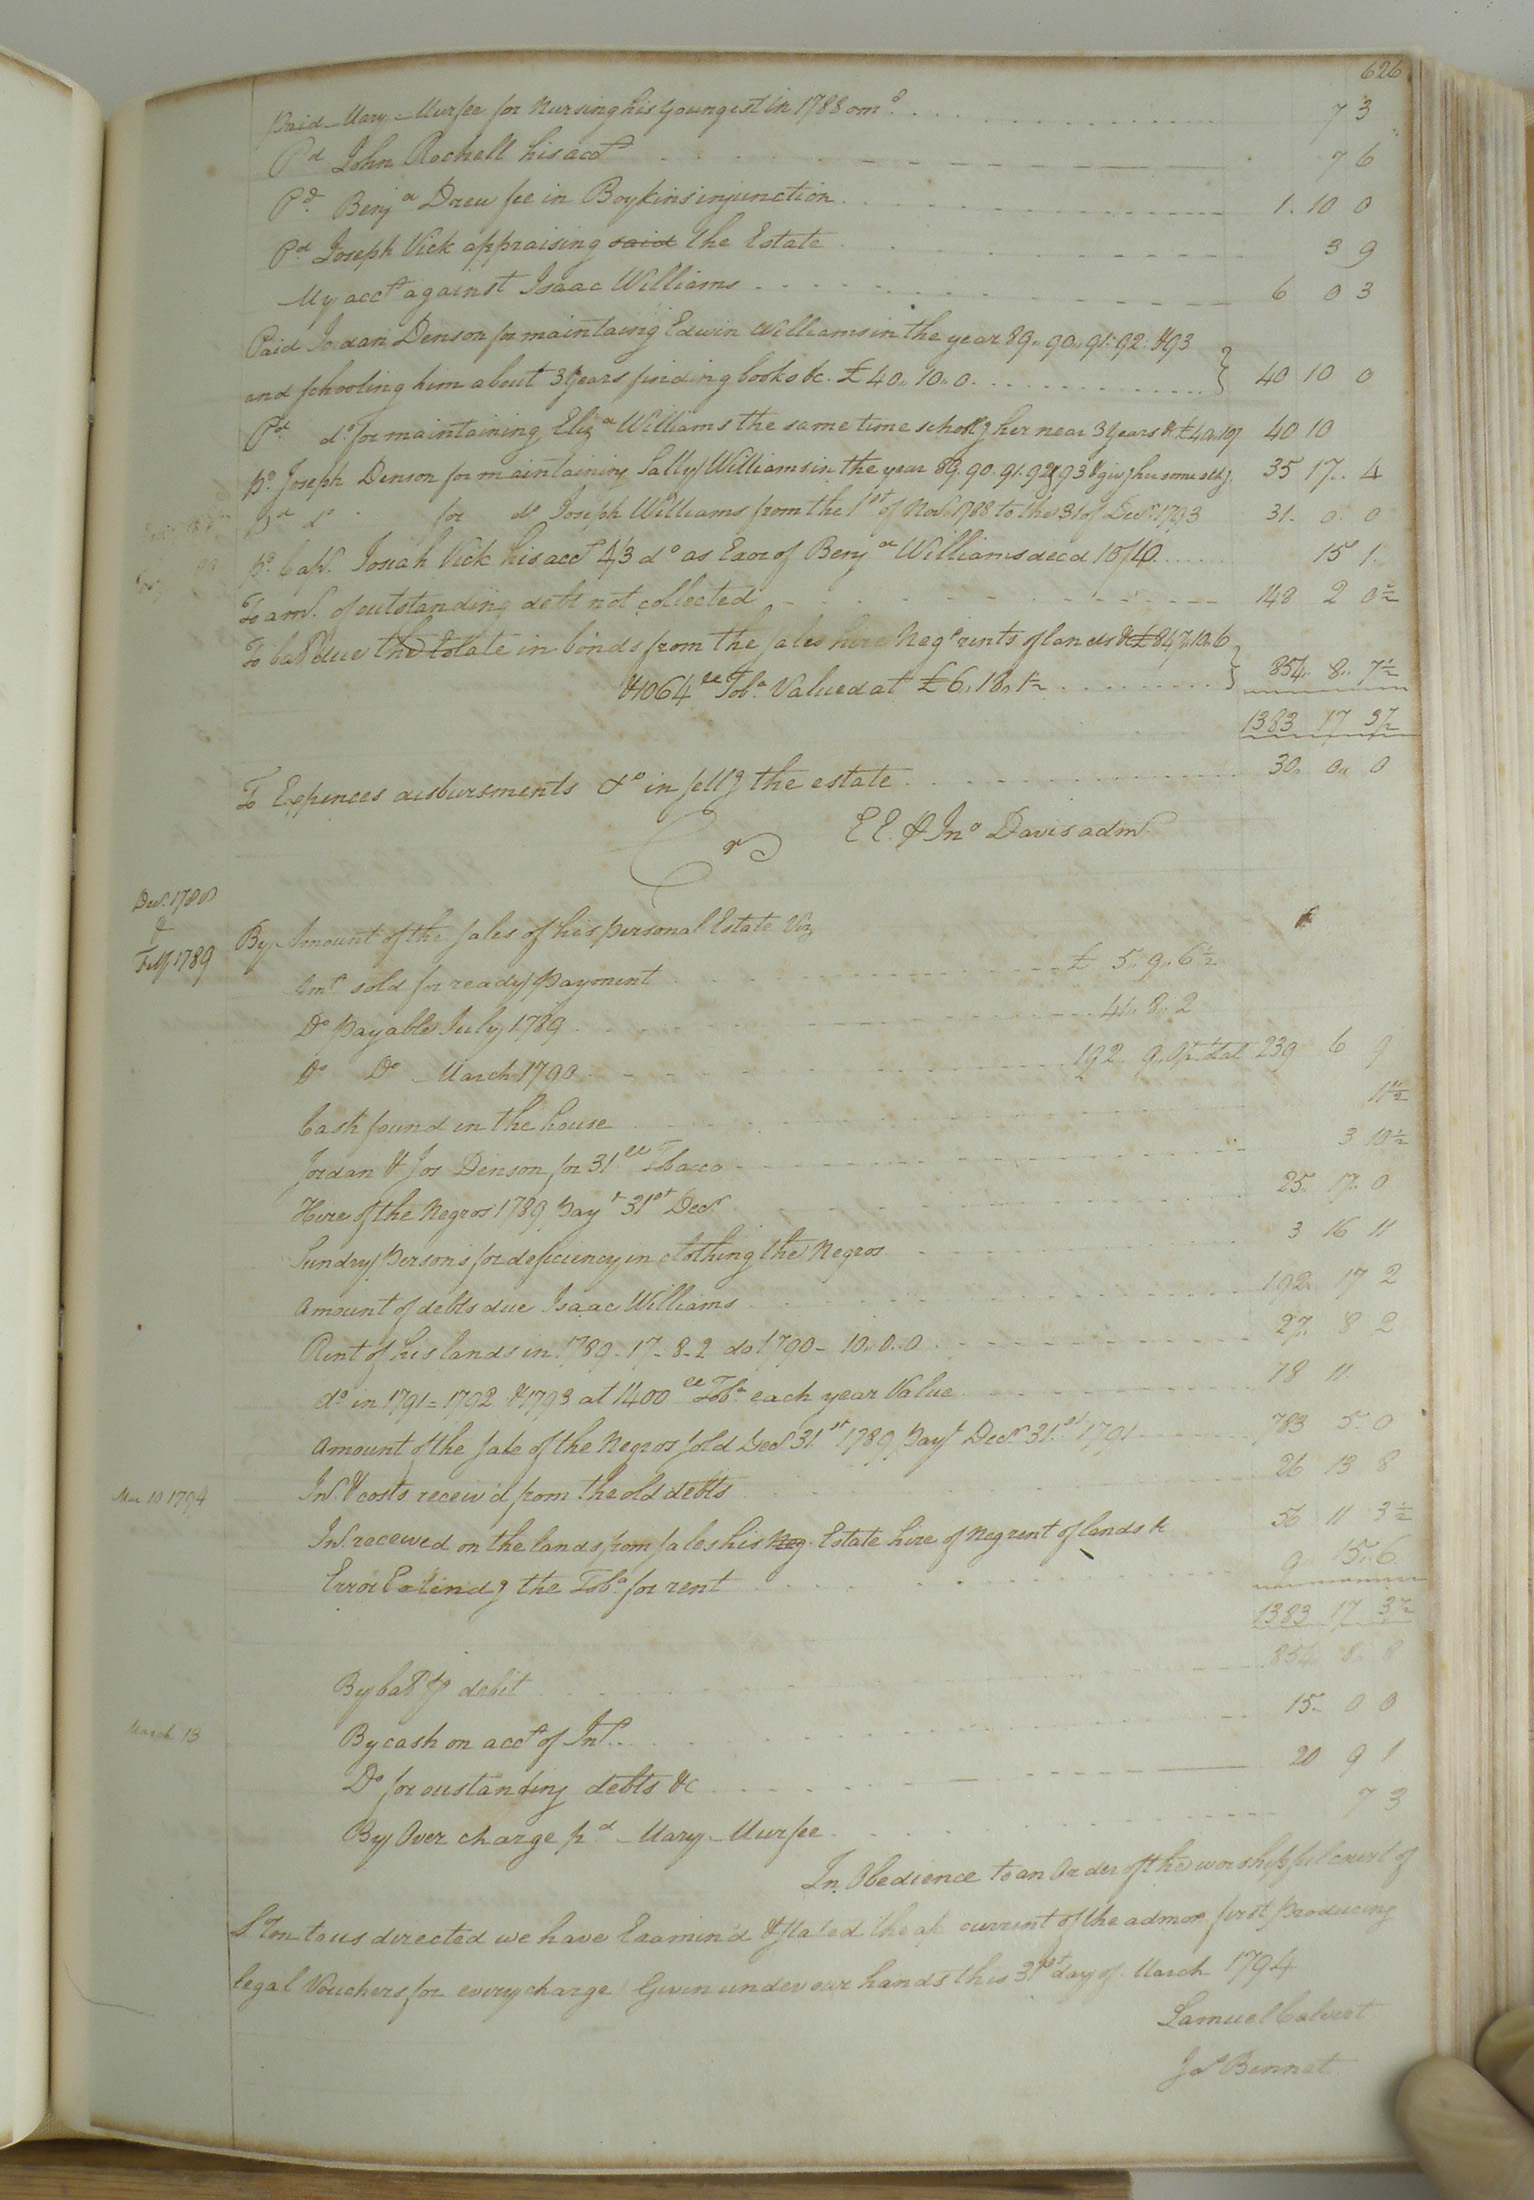 626
Paid Mary Murfee for Nursing his Youngest in 1788 om.d 7 3
Pd John Rochell his acct 7 6
Pd. Benja Drew fee in Boykins injunction 1. 10 0
Pd Joseph Vick appraising said the Estate 3 9
My acct against Isaac Williams 6 0 3
Paid Jodan Denson for maintaing Edwin Williams in the year 89.. 90.. 91.. 92. & 93
and schooling him about 3 Years finding books &c. £40.. 10.. 0. 40 10 0
Pd do for maintaining Eliza Williams the same time schoolg her near 3 Years & £40.10/ 40 10
pd. Joseph Denson for maintaining Sally Williams in the year 89. 90. 91. 92 & 93 & givg her some 35 17.. 4
Pd do for do Joseph Williams from the 1st of Nov. 1788 to the 31 of Decr. 1793 31. 0. 0
pd. Capt. Josiah Vick his acct 4/3 do as Exor of Benja Williams decd 10/10 15 1.
To amt. of outstanding dets not collected 148 2 0½
To balc due the Estate in bonds from the sales hire Negs rents of lands & £847.10.6
& 1064 lb Toba. Valued at £6.. 18.. 1½ 854.. 8.. 7½
1383 17 3½
To Expences disbursments &c in sellg the estate 30.. 0.. 0
Cr E E. P Jno Davis admr.
Decr. 1788
&
Feby 1789
By Amount of the sales of his personal Estate Viz
Amt sold for ready Payment £ 5.. 9.. 6½
Do Payable July 1789 41.. 8.. 2
Do Do March 1790 192.. 9.. 0½ total 239 6 9
Cash found in the house 11½
Jordan & Jos Denson for 31 lb Tobacco 3 10½
Hire of the Negros 1789 Payt 31st Decr 25.. 17.. 0
Sundry Persons for deficiency in clothing the Negros 3 16 11
Amount of debts due Isaac Williams 192. 17 2
Rent of his lands in 1789 - 17 - 8 - 2 do 1790 - 10.. 0.. 0 27.. 8 2
do in 1791 = 1792 & 1793 at 1400 lb Toba. each year Value 18 11
Amount of the sale of the Negros sold Decr 31st 1789 Payt Decr 31st 1791 783 5 0
Mar 10 1794
Int. & costs receiv'd from the old debts 26 13 8
Int. received on the lands from sales his Neg. Estate hire of Neg rent of lands & 56 11 3½
Error Extendg the Toba. for rent 9 15.. 6
1383 17 3½
By balc pr debit 854 8.. 8
March 13
By cash on acct of Int. 15.. 0 0
Do for oustanding debts &c 20 9 1
By Over charge pd Mary Murfee 7 3
In Obedience to an Order of the worshipful court of
S Ton to us directed we have Examin'd & Stated the a/c current of the admor first Producing
legal Vouchers for every charge Given under our hands this 31st day of March 1794
Samuel Calvert
Jas Bennet